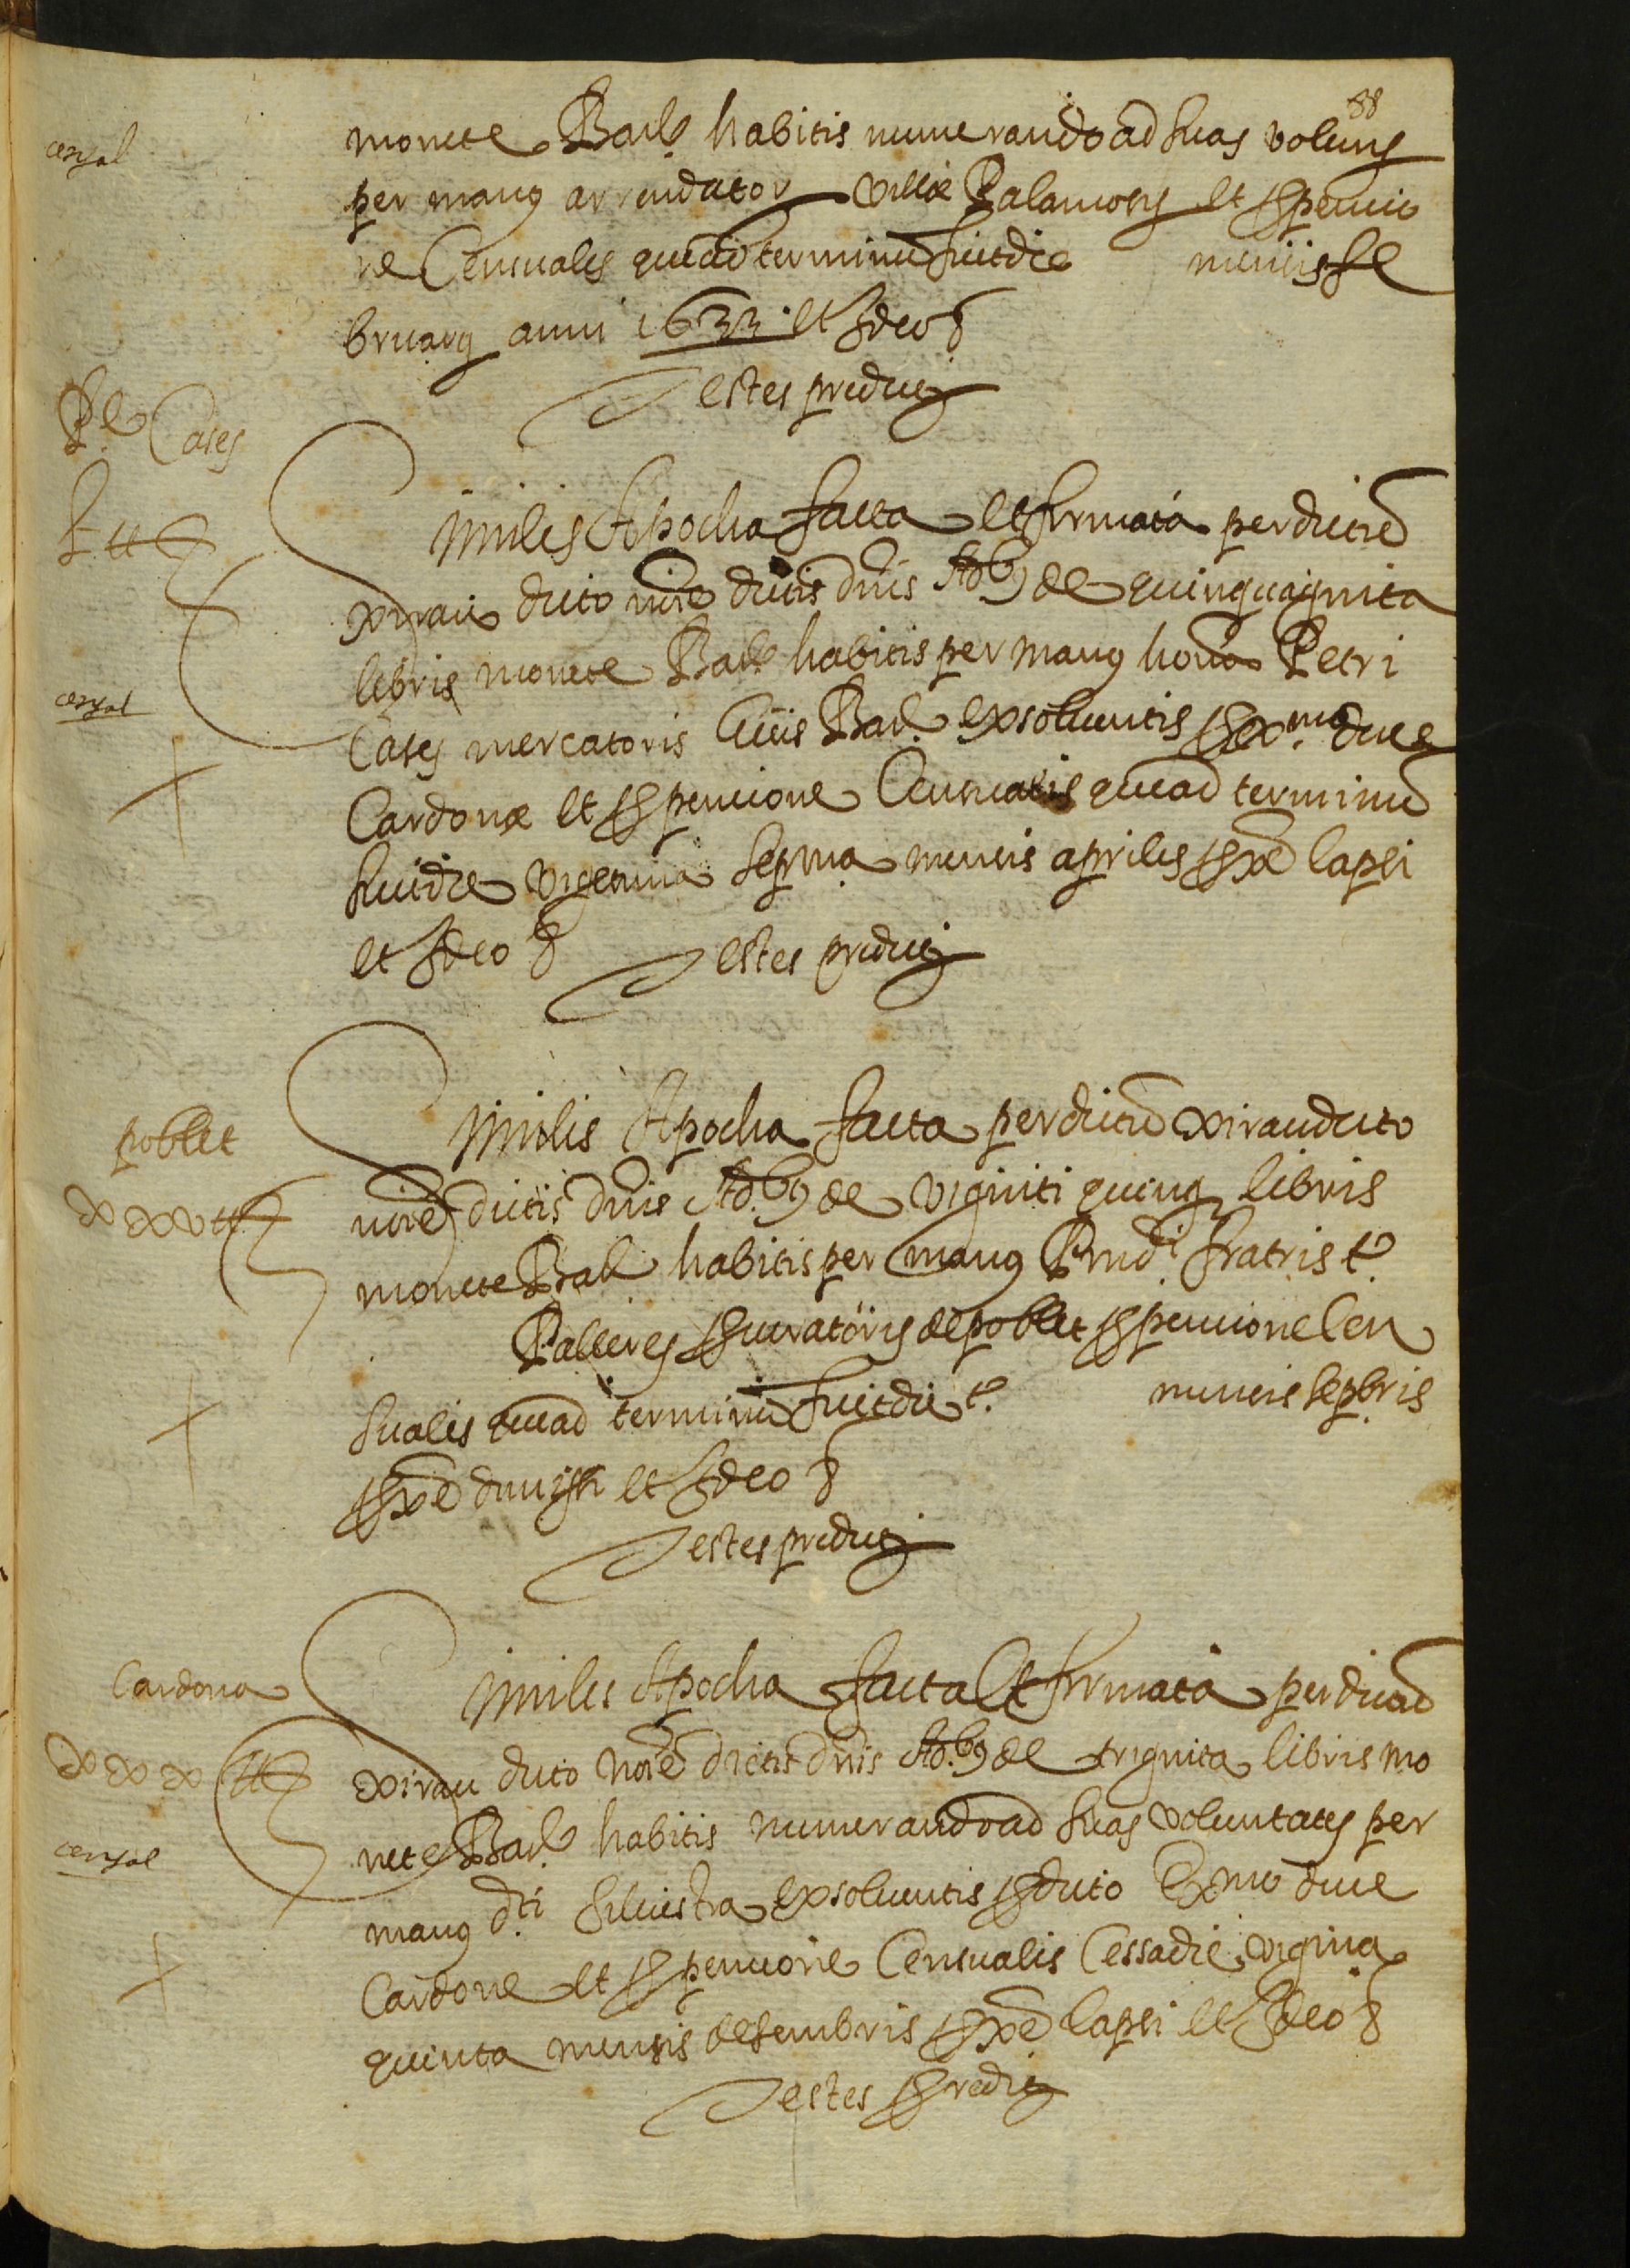 88
censal
monete Barc. habitis numerando ad suas volun.s
per manus arrendator ville Palamors et p pencio
ne Censualis que ad terminū fuit die mensis fe
bruarij anni 1633 et Ideo &
Testes predicti
P.e Cases
L ll
Similis Apocha facta et firmata per dictū
Xirau dicto noīe dictis dnīs Ad.bus de quinquaginta
libris monete Barc. habitis per manus honor. Petri
censal
Cases mercatoris Civis Barc. exsolventis p Ex.mo duce
Cardonæ et p pencione Censualis que ad terminū
fuit die vigesima septima mensis aprilis pxē lapsi
et Ideo &
Testes predicti
poblet
xxv ll
Similis Apocha facta per dictū Xirau dicto
noīe dictis dnīs Ad.bus de viginti quinq libris
monete Barc. habitis per manus R.nd.i fratris t.
Palleres procuratoris de poblet p pencione Cen
sualis que ad terminū fuit die t. mensis sepbris
pxē et Ideo &
Testes predicti
Cardona
xxx ll
Similis Apocha facta et firmata per dictū
Xirau dicto noīe dictis dnīs Ad.bus de triginta libris mo
nete Barc. habitis numerando ad suas voluntates per
censal
manus d.ti Silvestra exsolventis p dicto Exmo duce
Cardone et p pencione Censualis Cessa die vigīnā
quinta mensis desembris pxē lapsi et Ideo &
Testes predicti